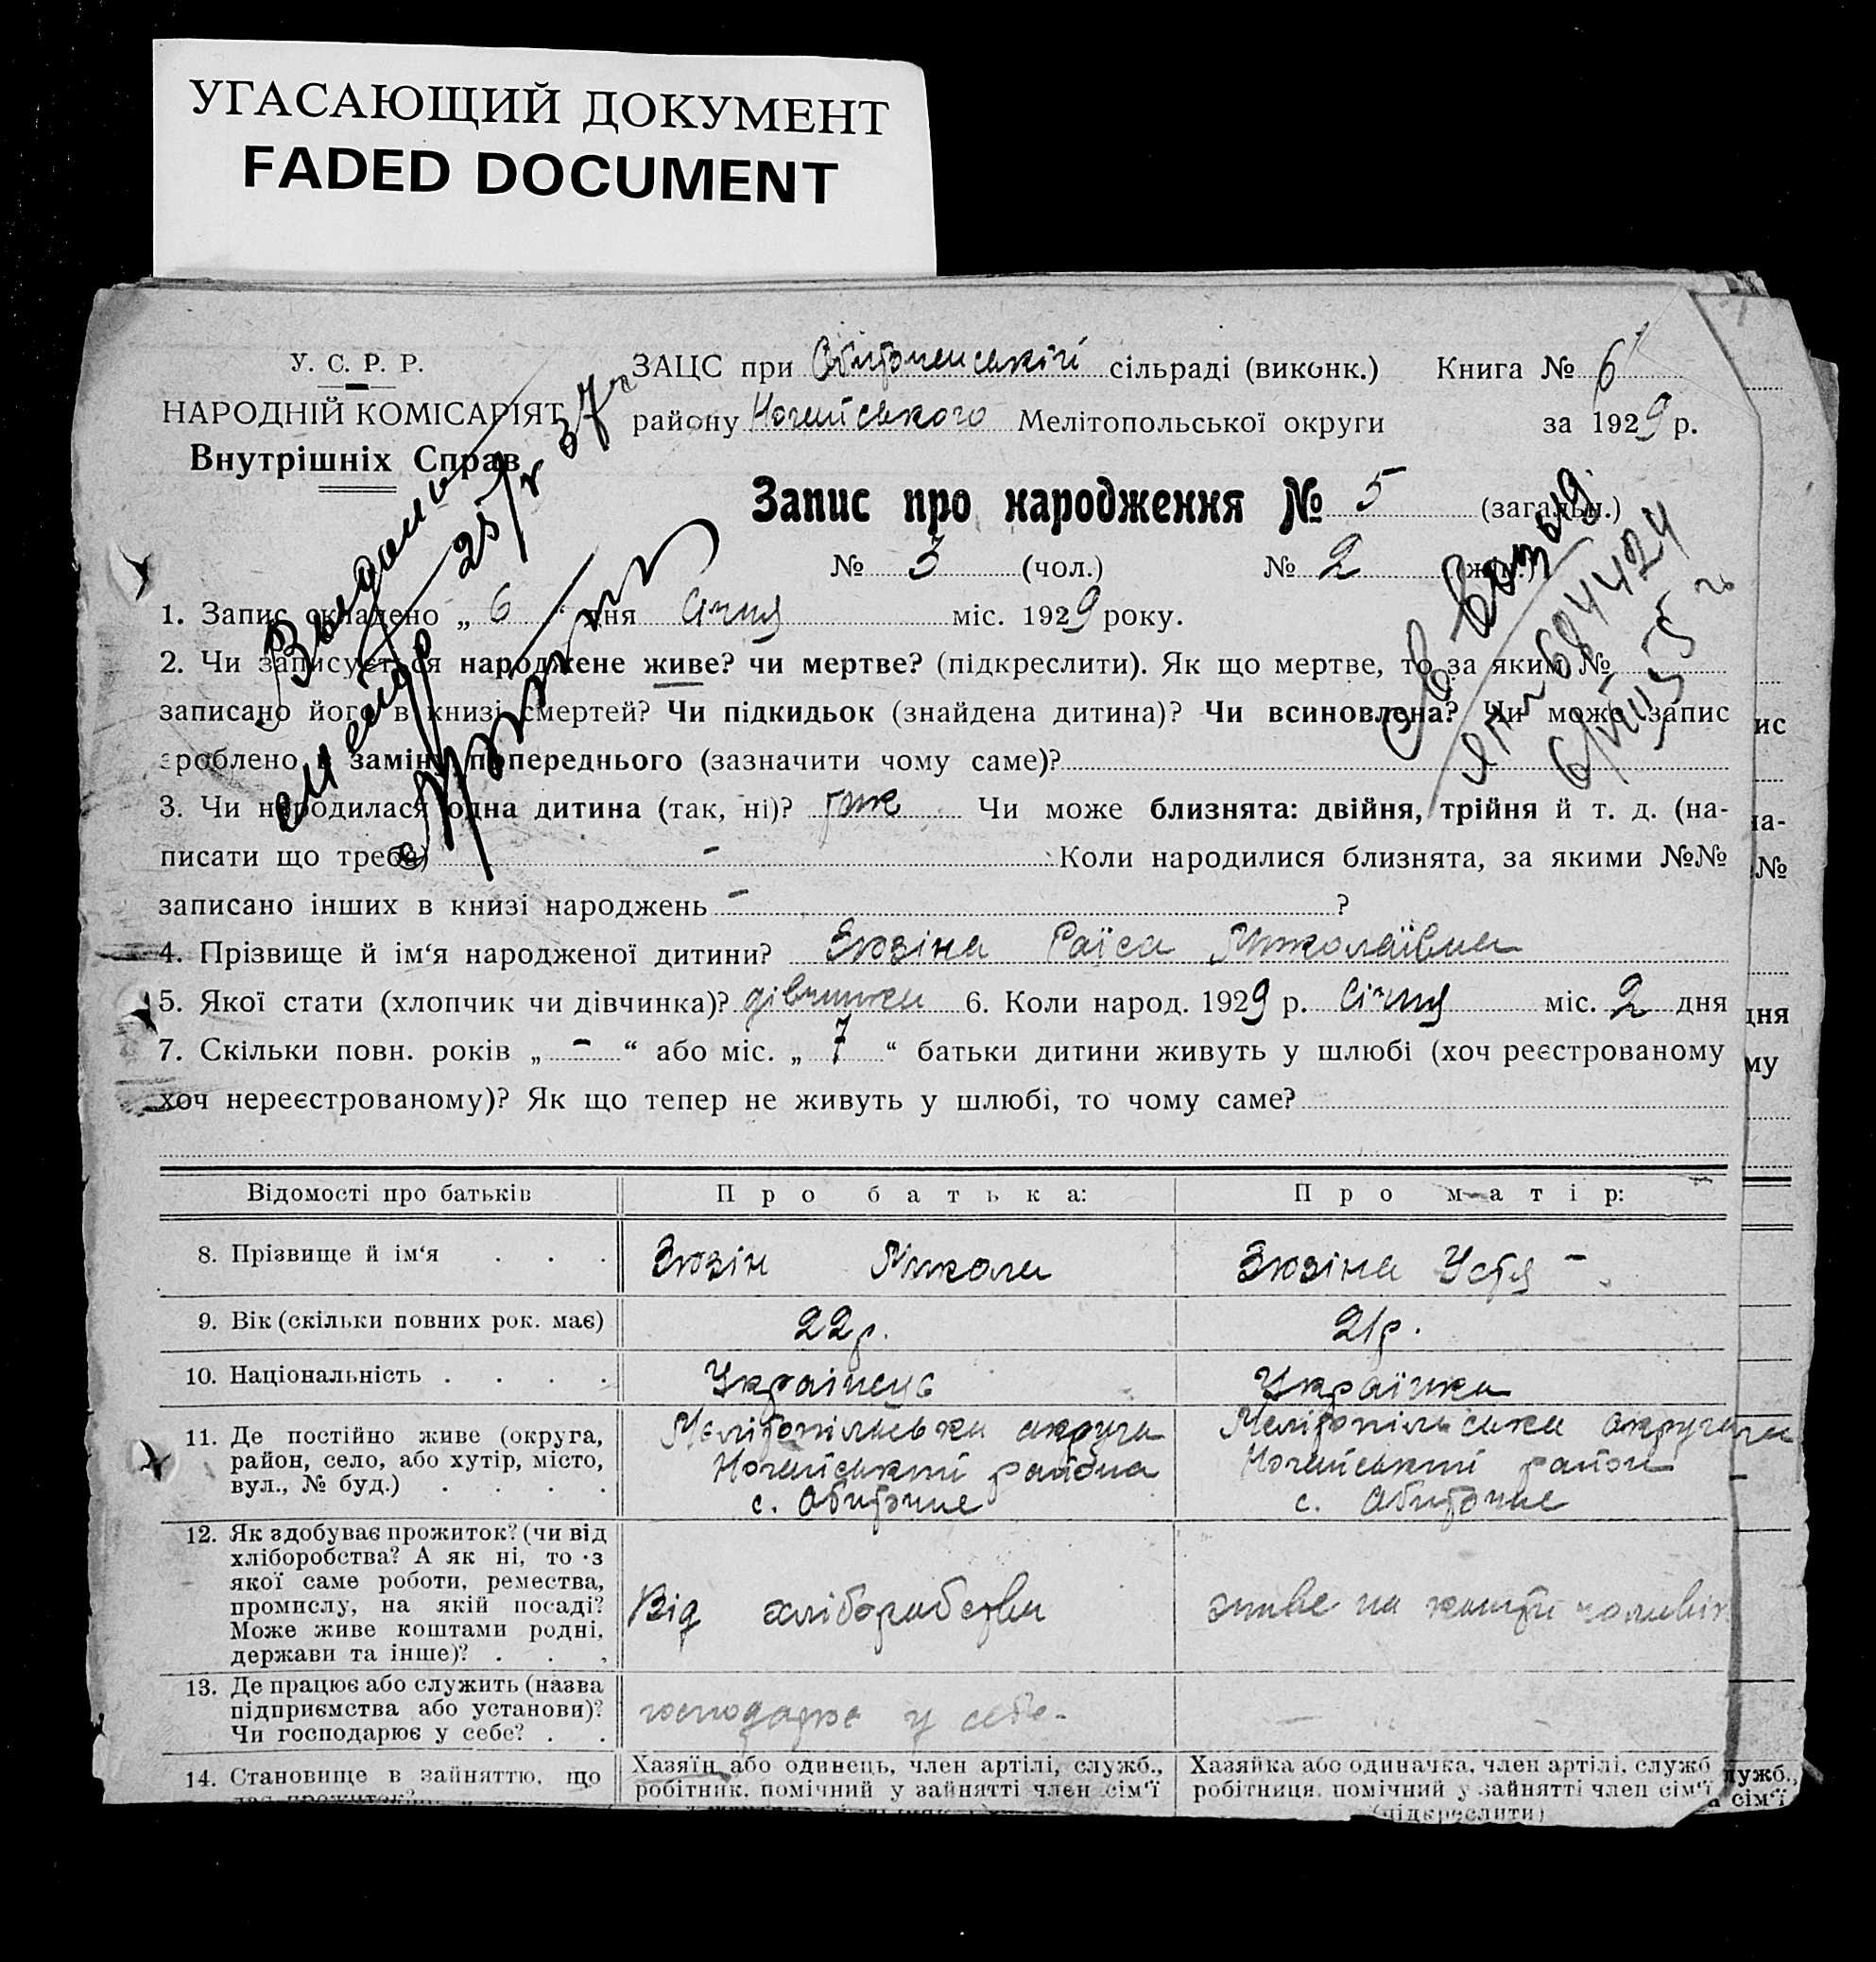 УГАСАЮЩИЙ ДОКУМЕНТ
FADED DOCUMENT
У. С. Р. Р.
НАРОДНІЙ КОМІСАРІЯТ
Внутрішніх Справ
ЗАЦС при Обиточенській сільраді (виконк.) Книга № 6
району Ногайського Мелітопольської округи за 1929 р.
Запис про народження № 5 (загальн.)
№ 3 (чол.) № 2 (жін.)
1. Запис складено „ 6 “ дня Січня міс. 1929 року.
2. Чи записується народжене живе? чи мертве? (підкреслити). Як що мертве, то за яким №
записано його в книзі смертей? Чи підкидьок (знайдена дитина)? Чи всиновлена? Чи може запис
зроблено в заміну попереднього (зазначити чому саме)?
3. Чи народилася одна дитина (так, ні)? так Чи може близнята: двійня, трійня й т. д. (на-
писати що треба) - Коли народилися близнята, за якими №№
записано інших в книзі народжень - ?
4. Прізвище й ім‘я народженої дитини? Зюзіна Раїса Миколаївна
5. Якої стати (хлопчик чи дівчинка)? дівчинка 6. Коли народ. 1929 р. Січня міс. 2 дня
7. Скільки повн. років „ - “ або міс. „ 7 “ батьки дитини живуть у шлюбі (хоч реєстрованому
хоч нереєстрованому)? Як що тепер не живуть у шлюбі, то чому саме?
Відомості про батьків Про батька: Про матір:
8. Прізвище й ім‘я . . . Зюзін Микола Зюзіна Устя -
9. Вік (скільки повних рок. має) 22 р. 21 р.
10. Національність . . . . Українець Українка
11. Де постійно живе (округа,
район, село, або хутір, місто,
вул., № буд.) . . . .
Мелітопільська округа
Ногайський района
с. Обиточне
Мелітопільська округа
Ногайський район
с. Обиточне
12. Як здобуває прожиток? (чи від
хліборобства? А як ні, то з
якої саме роботи, ремества,
промислу, на якій посаді?
Може живе коштами родні,
держави та інше)? . . .
Від хліборобства
живе на кошти чоловік
13. Де працює або служить (назва
підприємства або установи)?
Чи господарює у себе? . .
господарює у себе -
14. Становище в зайняттю, що
дає прожиток?
Хазяїн або одинець, член артілі, служб.,
робітник, помічний у зайнятті член сім‘ї
Хазяйка або одиначка, член артілі, служб
робітниця, помічний у зайнятті член сім‘ї
(підкреслити)
684424
37 г
ис
на-
№
дня
му
лужб.,
а сім‘ї